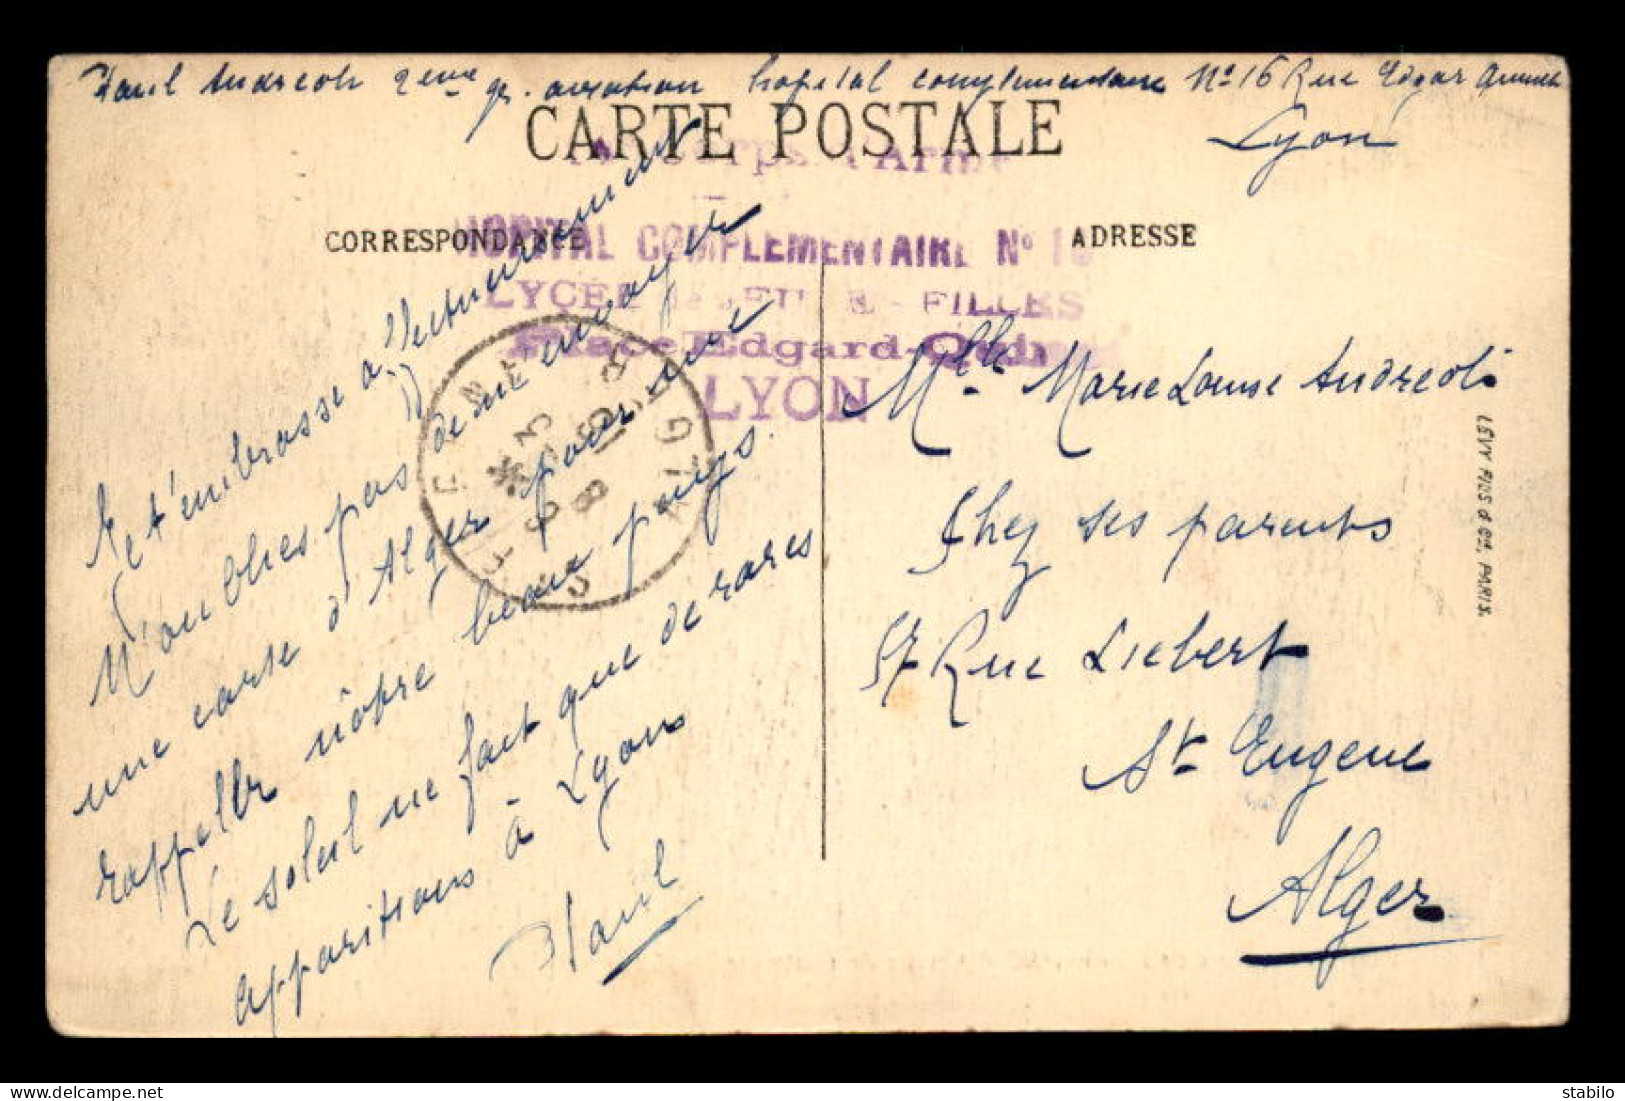 Paul Andreoli 2eme gr. aviation hopital complementaire No 16 Rue Edgar Quinet
Lyon
CARTE POSTALE
Corps d'Armé
CORRESPONDANCE
HOPITAL COMPLEMENTAIRE No 16
ADRESSE
LYCÉE de JEUNES - FILLES
Place Edgard-Quinet
LYON
Je t'embrasse affectueusement
N'oublies pas de me envoyer
une carte d'Alger pour me
rappeller nôtre beau pays.
Le soleil ne fait que de rares
apparitions à Lyon
Paul
Mlle Marie Louise Andreoli
Chez ses parents
57 Rue Liebert
St Eugene
Alger
LÉVY FILS & Cie, PARIS.
stabilo